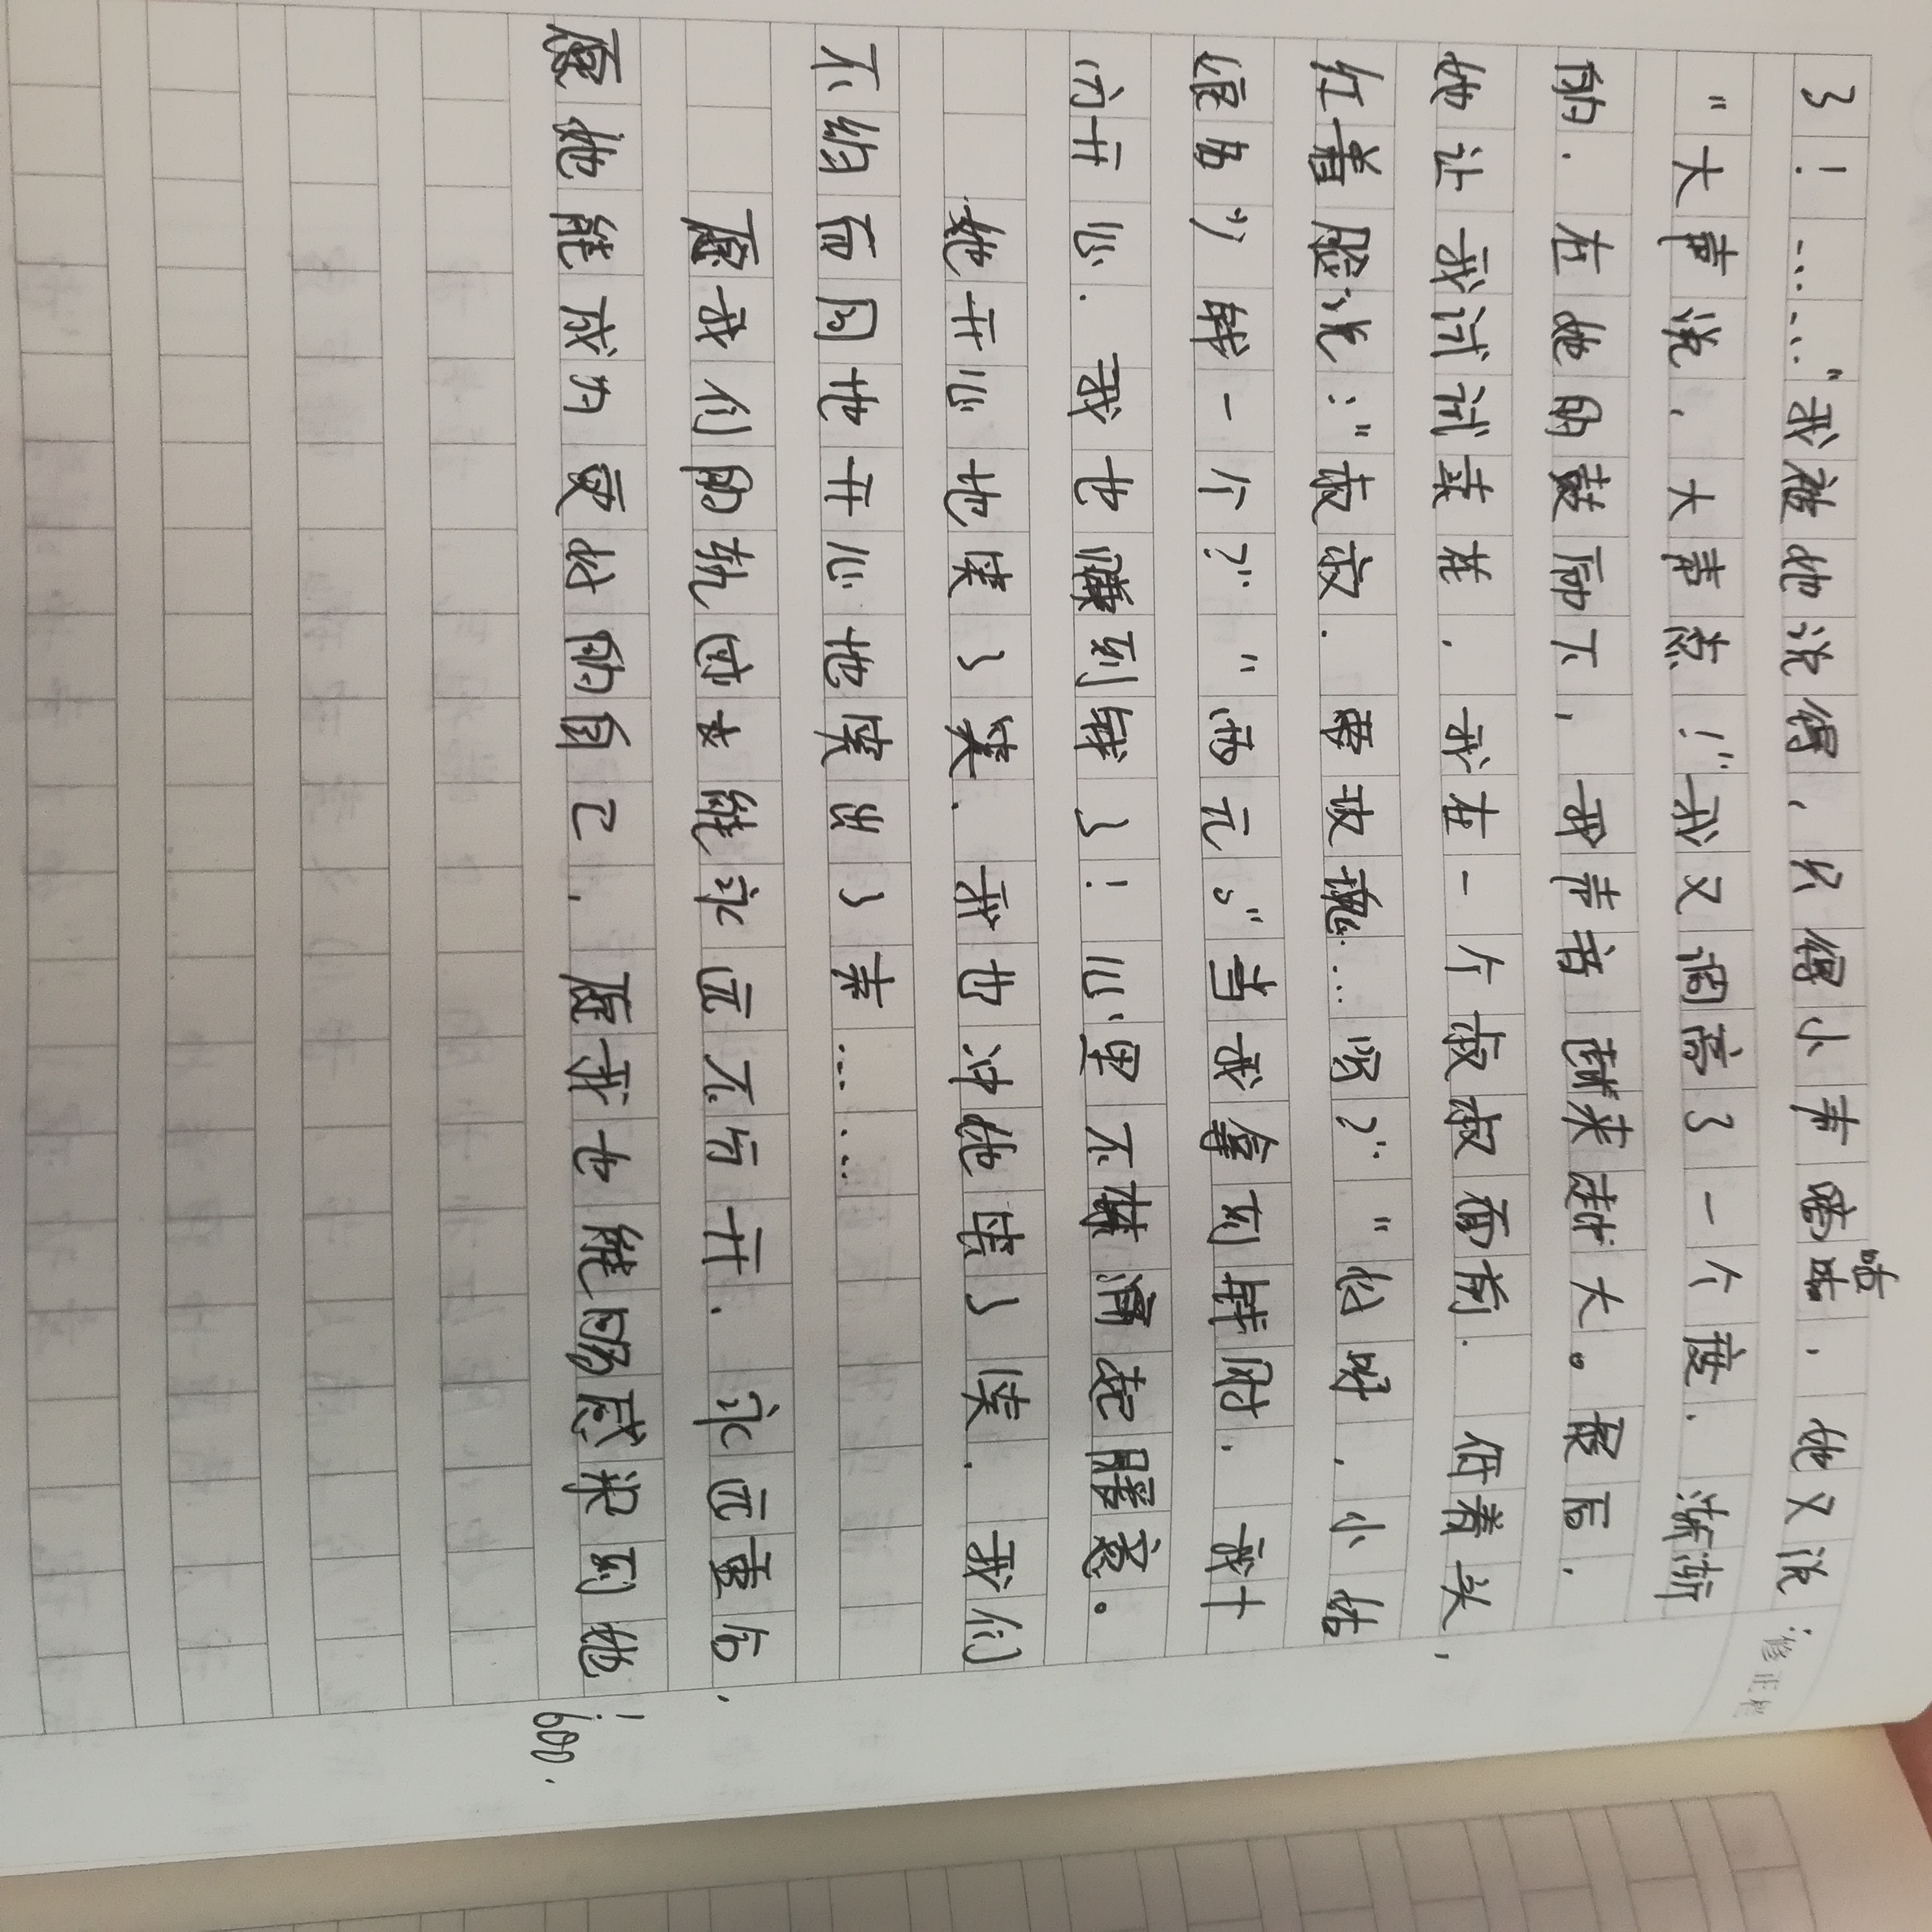 了！……”我被她说得，小声，她又说：
“大声说，大声点！”我又调高了一个度．渐渐
的．在她的鼓励下，我声音越来越大。最后．
她让我试试卖花．我在一个叔叔面前．低着头，
红着脸说：“叔叔．要玫瑰…吗？”“你好，小姑
娘多少钱一个？”“两元。”当我拿到钱时．我十
分开心．我也赚到钱了！心里不禁起意。
她开心地笑了笑．我也对她笑了笑．我们
不约而同地开心地笑出了声……
愿我们的轨永远不分开．永远重合，
愿她能成为更好的自己．愿我能够她！
600.
修正栏